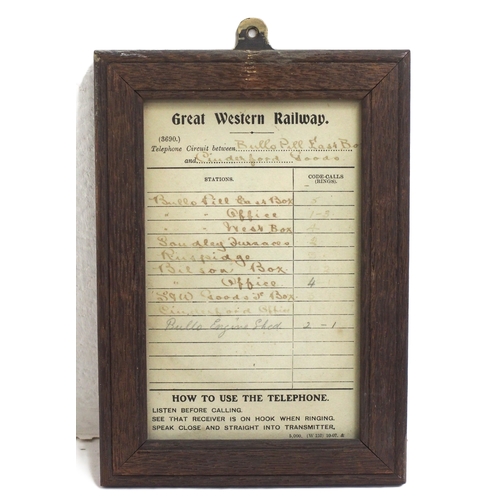 Great Western Railway.
(3690.)
Telephone Circuit between Bullo Pill East Box
and Cinderford Goods
STATIONS. CODE-CALLS (RINGS).
Bullo Pill East Box
" " Office 1-3
" " West Box
Soudley Furnaces
Ruspidge
Bilson Box
" Office 4
Goods Box
Cinderford Office
Bullo Engine Shed 2-1
HOW TO USE THE TELEPHONE.
LISTEN BEFORE CALLING.
SEE THAT RECEIVER IS ON HOOK WHEN RINGING.
SPEAK CLOSE AND STRAIGHT INTO TRANSMITTER.